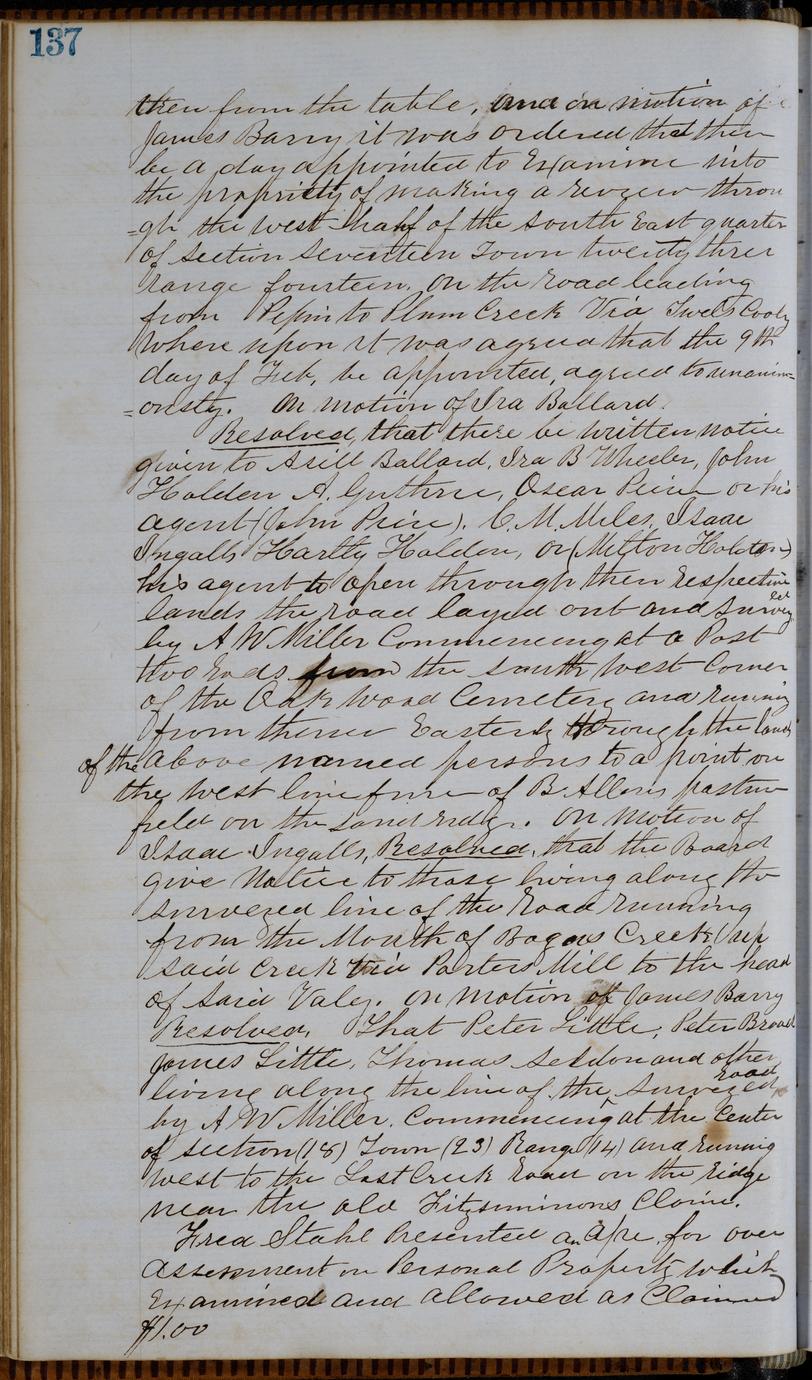 137
then from the table, and on motion of
James Barry it was ordered that then
be a day appointed to Examine into
the propriety of making a review throu
=gh the west half of the south East quarter
of section seventeen Town twenty three
range fourteen. on the road leading
from Pepin to Plum Creek Via Cooly
Where upon it was agreed that the 9th
day of Feb, be appointed, agreed to unanim=
=ously. On motion of Ira Ballard.
Resolved, that there be written notice
given to Asill Ballard, Ira B Wheeler, John
Holden A. Guthrie, Oscar Peirce or his
agent (John Peirce). C. M. Miles, Isaac
Ingalls Hartly Holden, or (Milton Holden)
his agent to open through their Respective
lands the road layed out and Surveyed
by A W Miller Commencing at a Post
two Rods from the south west Corner
of the Oak Wood Cemetery and running
from thence Easterly through the lands
of the above named persons to a point on
the west line fence of B. Allens pasture
field on the sand ridge. On Motion of
Isaac Ingalls, Resolved, that the Board
give Notice to those living along the
surveyed line of the Road running
from the Mouth of Bogous Creek up
said Creek Via Porters Mill to the head
of said Valey. on Motion of James Barry
Resolved, That Peter Little, Peter Broad
James Little, Thomas Seldon and other
living along the line of the road surveyed
by A W Miller. Commencing at the Center
of section (18) Town (23) Range (14) and running
West to the Lost Creek Road on the ridge
near the old Fitzsimmons Claim.
Fred Stahl Presented an for over
assessment on Personal Property which
Examined and allowed as Claimed
$1.00